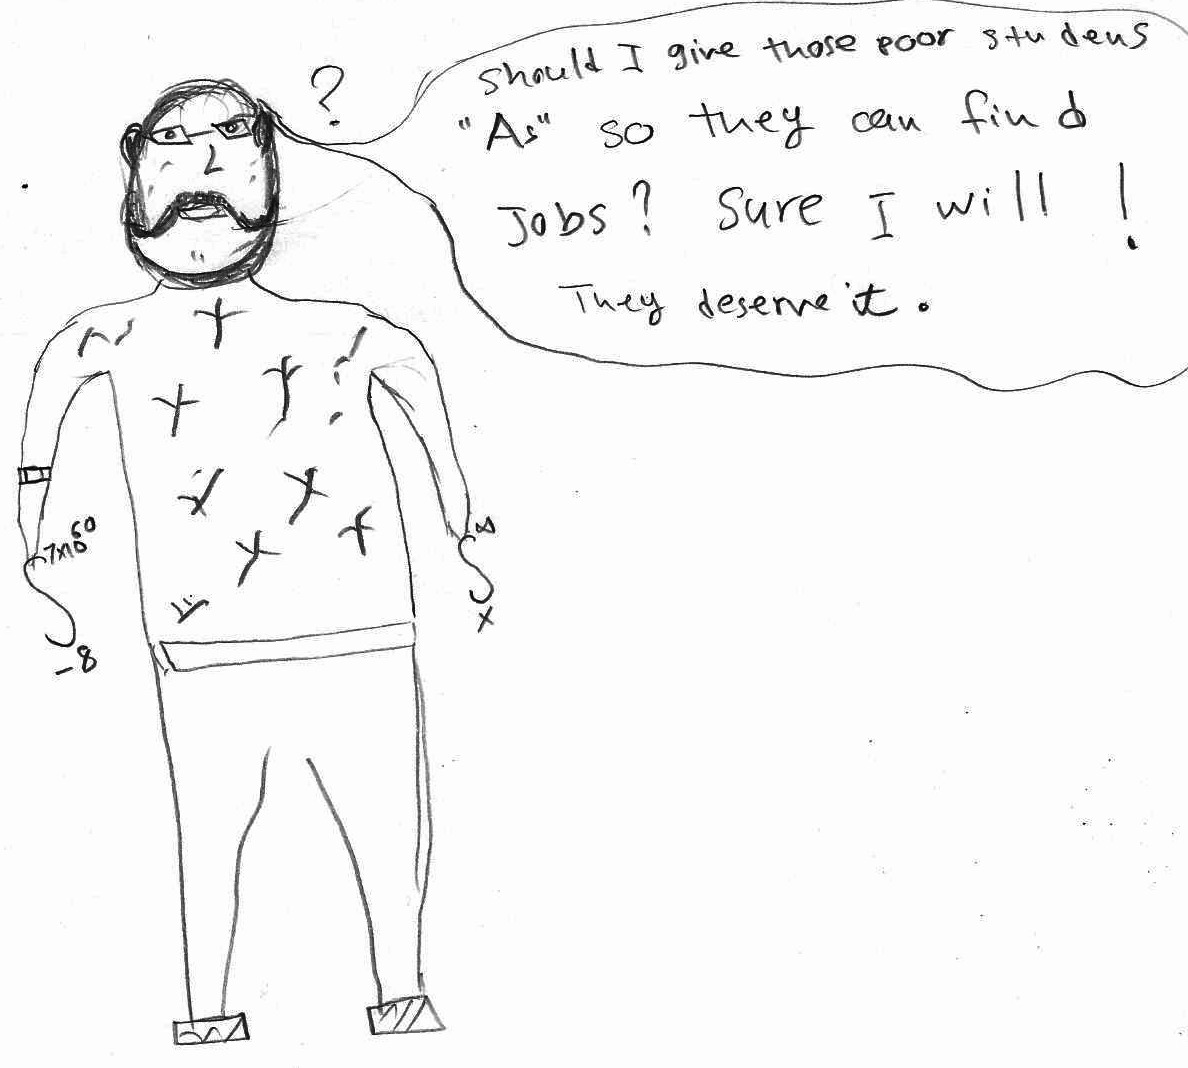 ?
should I give those poor studens
"As" so they can find
Jobs? Sure I will !
They deserve it.
7x10^60
-8
∞
x